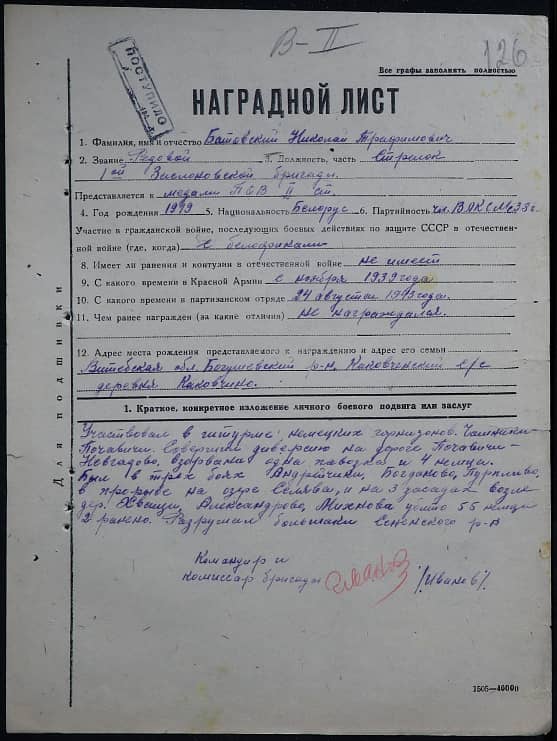 В-II
126
Все графы заполнять полностью
ПОСТУПИЛО
НАГРАДНОЙ ЛИСТ
1. Фамилия, имя и отчество Батовский Николай Трафимович
2. Звание Рядовой 3. Должность, часть Стрелок
1ой Заслоновской бригады.
Представляется к медали ПОВ II ст.
4. Год рождения 1919 5. Национальность Белорус 6. Партийность чл. ВЛКСМ с 38г.
Участие в гражданской войне, последующих боевых действиях по защите СССР в отечествен-
ной войне (где, когда) С белофинами
8. Имеет ли ранения и контузии в отечественной войне не имеет
9. С какого времени в Красной Армии с ноября 1939 года
10. С какого времени в партизанском отряде 24 августа 1943 года.
11. Чем ранее награжден (за какие отличия) не награждался.
12. Адрес места рождения представляемого к награждению и адрес его семьи
Витебская обл. Богушевский р-н, Каковченский с/с
деревня Каковчино.
Для подшивки
1. Краткое, конкретное изложение личного боевого подвига или заслуг
Участвовал в штурме немецких горнизонов:
Почавичи. Совершил диверсию на дороге Почавичи-
взорвана одна павозка и 4 немца.
Был в трех боях Андрейчики, Богданово,
в прорыве на озере Селява, и на 3 засадах возле
дер. Александрово, Михново убито 55 немца
2 ранено. Разрушал большаки Сенненского р-на
Командир и
комиссар бригады /Иванов/.
1505—40000